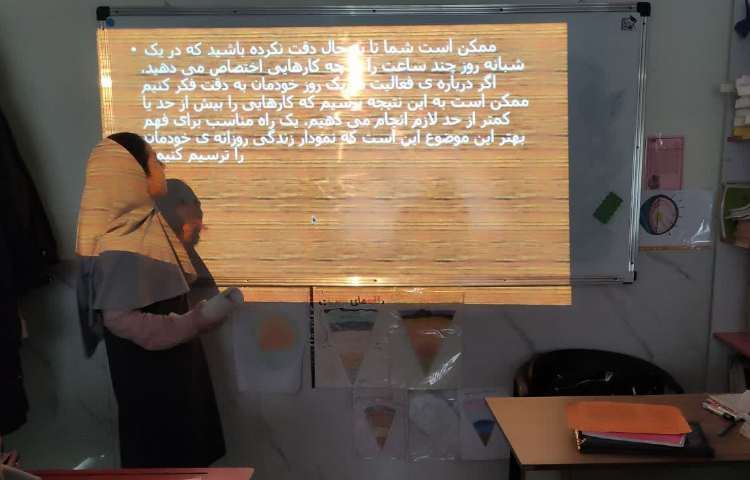 • ممکن است شما تا به حال دقت نکرده باشید که در یک
شبانه روز چند ساعت را به چه کارهایی اختصاص می دهید.
اگر درباره ی فعالیت یک روز خودمان به دقت فکر کنیم
ممکن است به این نتیجه برسیم که کارهایی را بیش از حد یا
کمتر از حد لازم انجام می دهیم. یک راه مناسب برای فهم
بهتر این موضوع این است که نمودار زندگی روزانه ی خودمان
را ترسیم کنیم.